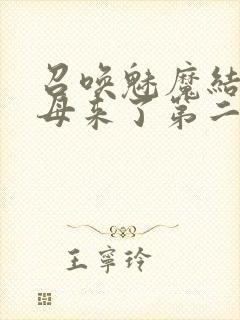 召唤魅魔結
母来了第二
王寧玲